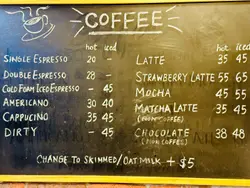 COFFEE
hot iced
SINGLE ESPRESSO 20 -
DOUBLE ESPRESSO 28 -
COLD FOAM ICED ESPRESSO - 45
AMERICANO 30 40
CAPPUCINO 35 45
DIRTY - 45
hot iced
LATTE 35 45
STRAWBERRY LATTE 55 65
MOCHA 45 55
MATCHA LATTE 35 45
(NON COFFEE)
CHOCOLATE 38 48
(NON COFFEE)
CHANGE TO SKINNED/OATMILK + $5